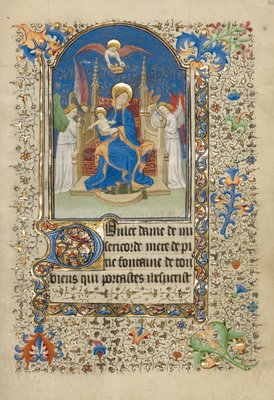 Dulce dame de mi
sericorde mere de pi
tie fontaine de tous
biens qui portastes ihesucrist